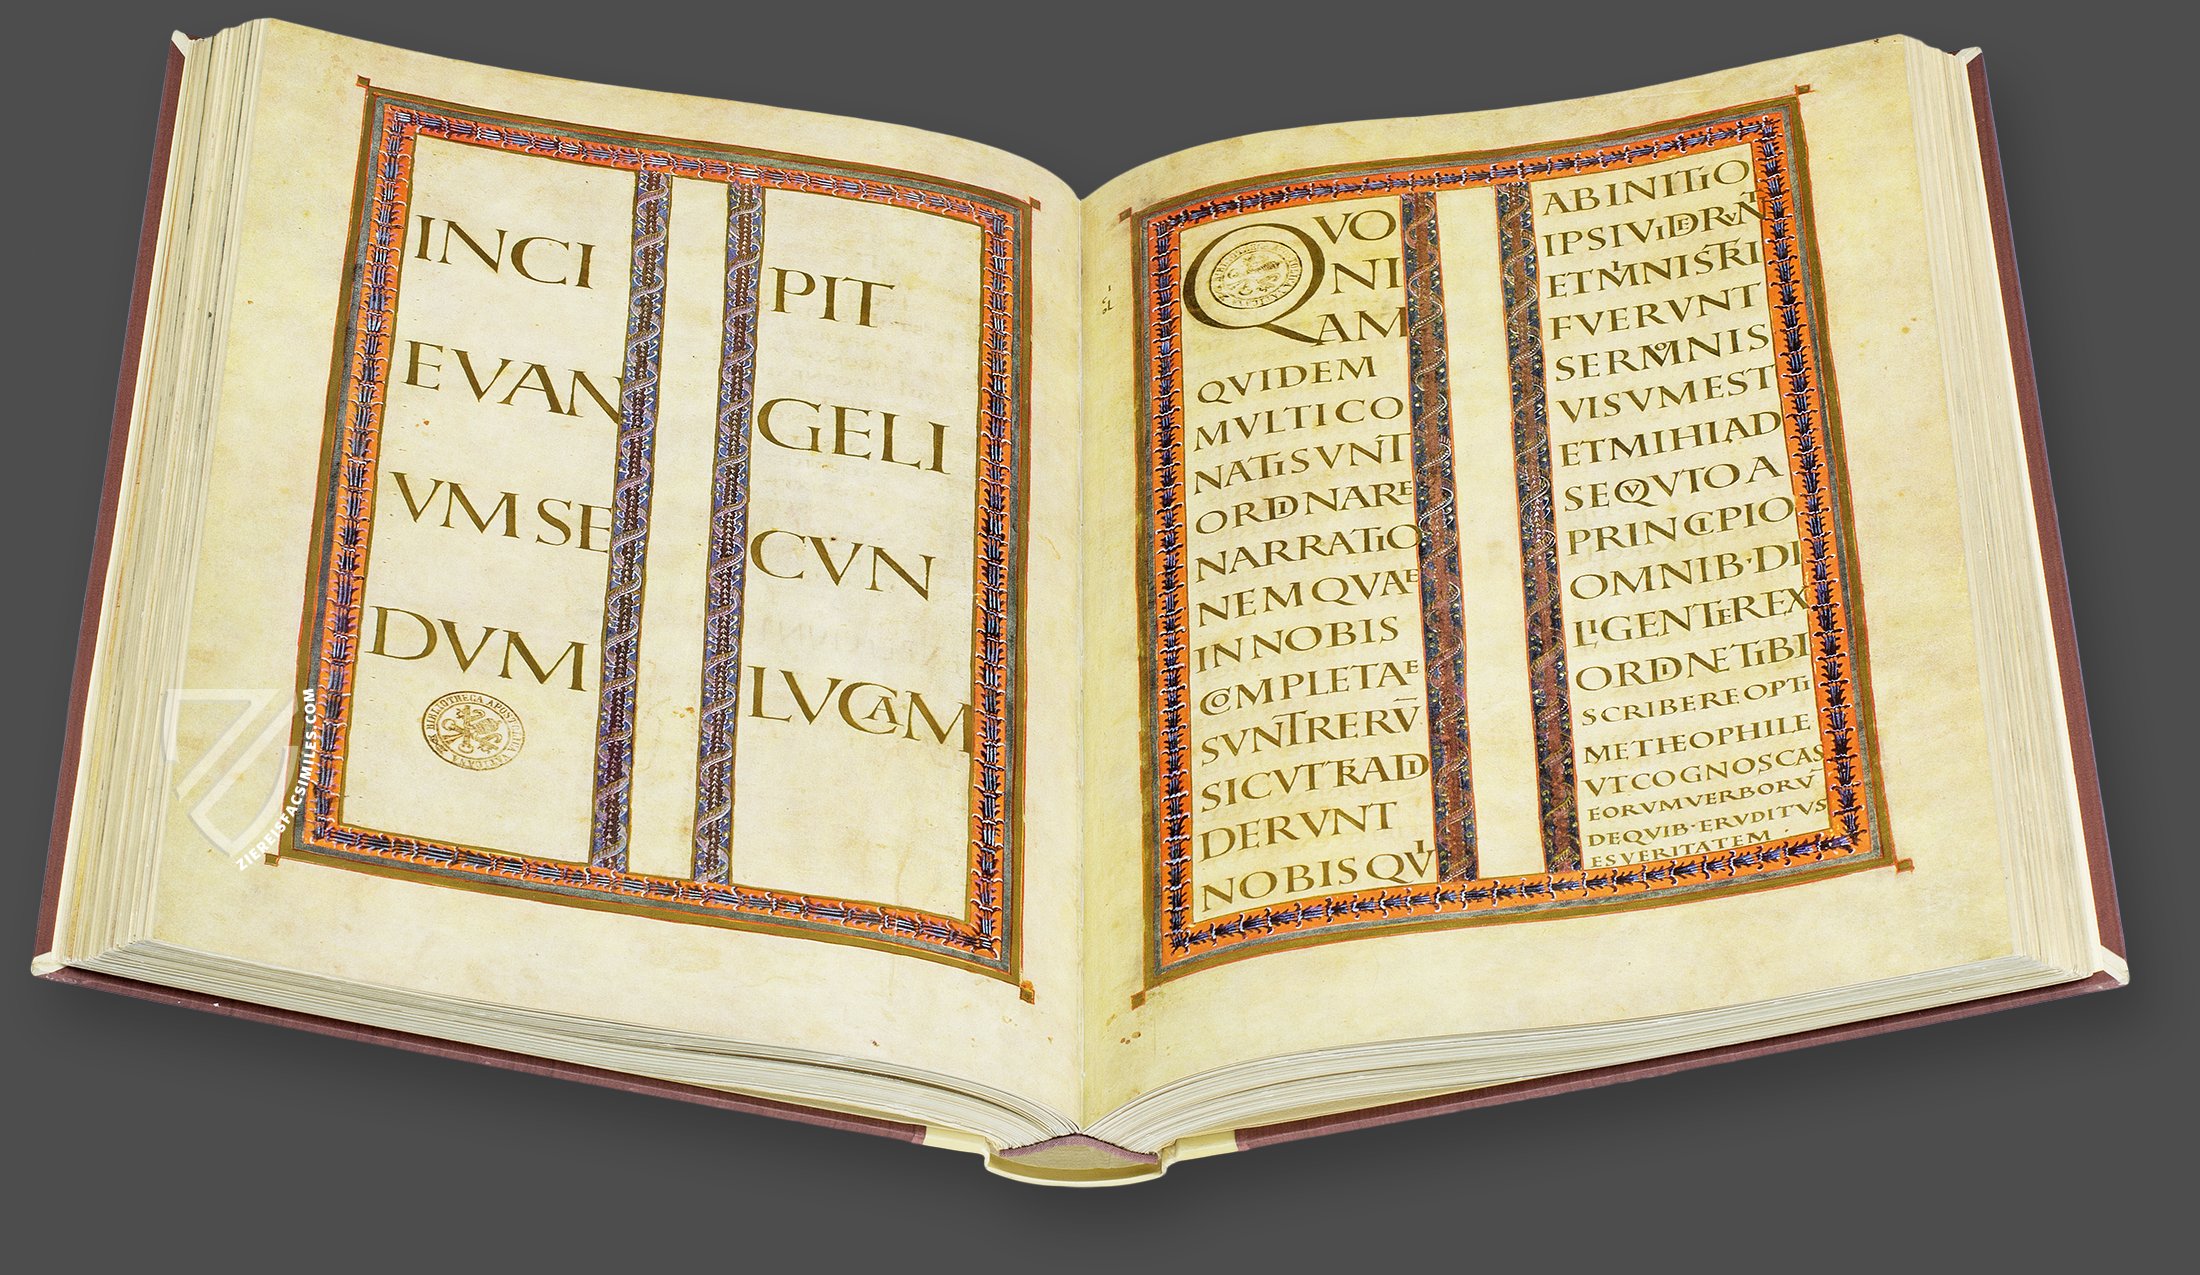 INCI PIT
EVAN GELI
VM SE CVN
DVM LVCAM
BIBLIOTHECA APOSTOLICA VATICANA
ZIEREISFACSIMILES.COM
QVO
NI
AM
QVIDEM
MVLTI CO
NATI SVNT
ORDINARE
NARRATIO
NEM QVAE
IN NOBIS
COMPLETAE
SVNT RERV̄
SICVT TRADI
DERVNT
NOBIS QVI
AB INITIO
IPSI VIDERVNT
ET MINISTRI
FVERVNT
SERMONIS
VISVM EST
ET MIHI AD
SEQVVTO A
PRINCIPIO
OMNIB·DI
LIGENTER EX
ORDINE TIBI
SCRIBERE OPTI
ME THEOPHILE
VT COGNOSCAS
EORVM VERBORV̄
DE QVIB·ERVDITVS
ES VERITATEM·